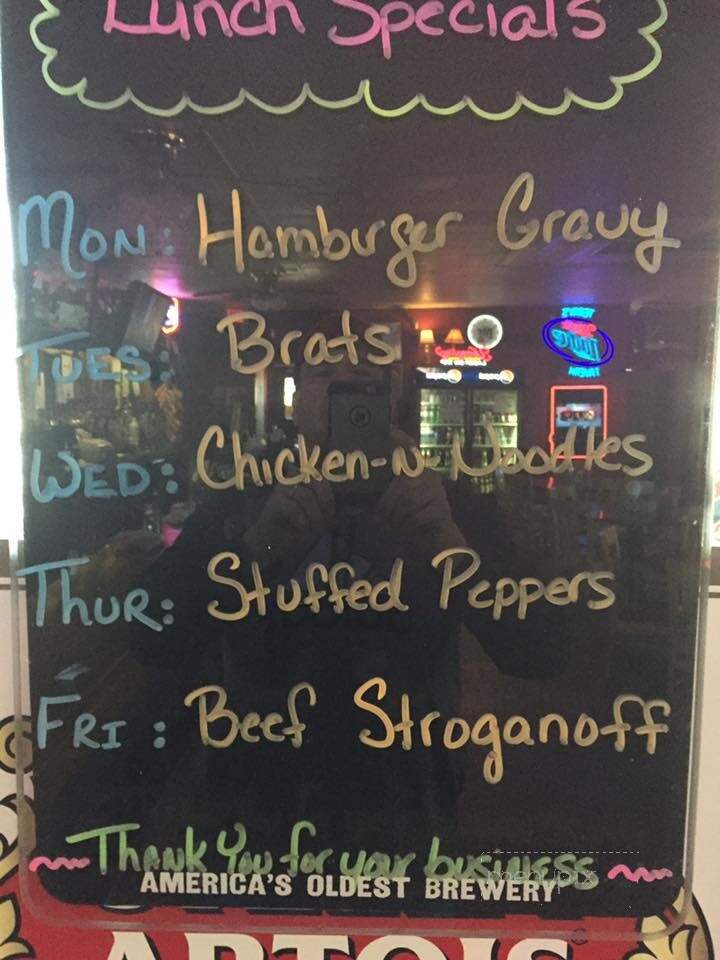 Lunch Specials
Mon: Hamburger Gravy
Tues: Brats
Wed: Chicken-n-Noodles
Thur: Stuffed Peppers
Fri: Beef Stroganoff
Thank You for your business
menupix
AMERICA'S OLDEST BREWERY
ARTOIS